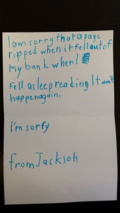 I am sorry that a page
ripped when it fell out of
my bank when I
fell asleep reading It wont
happen again.
I'm sorry
from Jackson